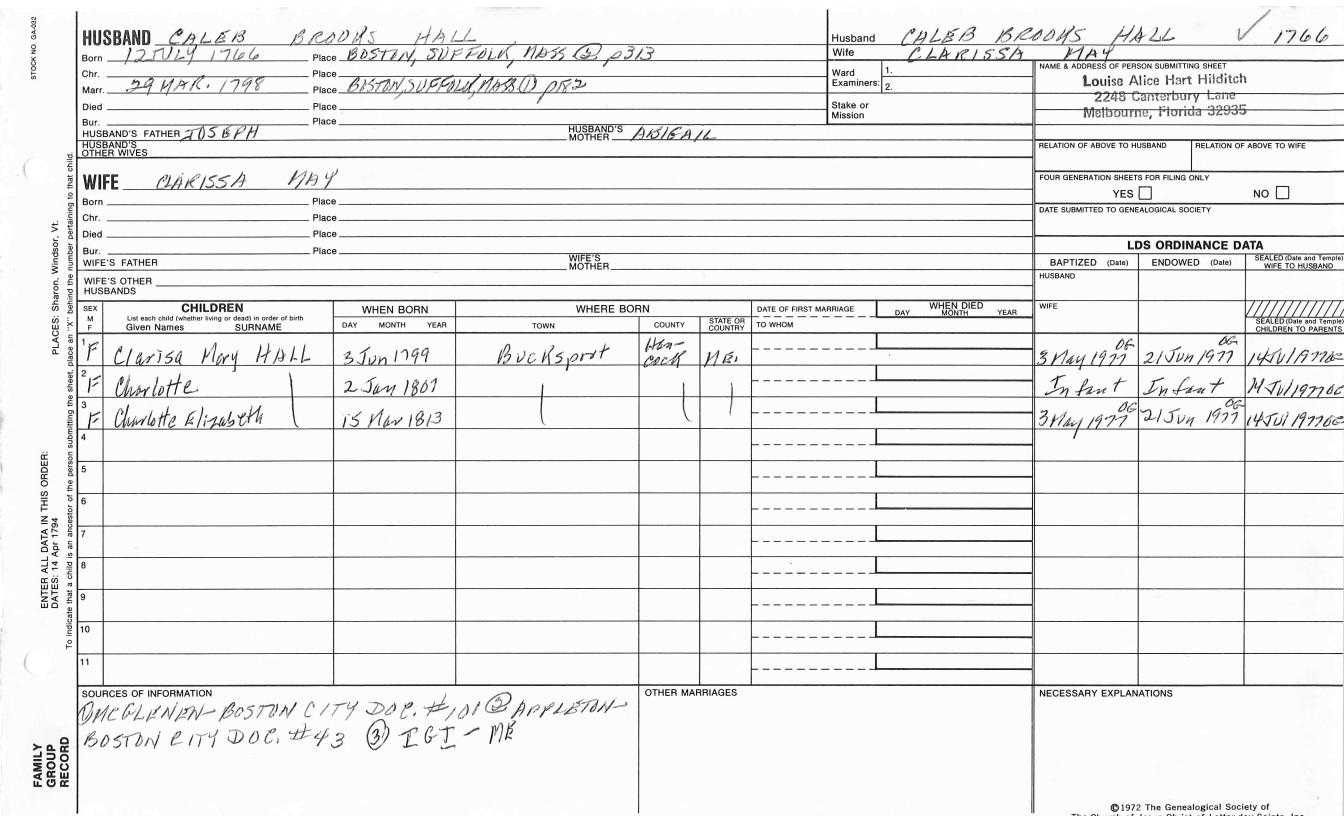 STOCK NO. GA-032
HUSBAND CALEB BROOMS HALL
Born 12 JULY 1766 Place BOSTON, SUFFOLK, MASS (2) p313
Chr. Place
Marr. 29 MAR. 1798 Place BOSTON, SUFFOLK, MASS (1) p182
Died Place
Bur. Place
HUSBAND'S FATHER JOSEPH HUSBAND'S MOTHER ABIGAIL
HUSBAND'S OTHER WIVES
Husband CALEB BROOMS HALL ✓ 1766
Wife CLARISSA MAY
Ward Examiners: 1.
2.
Stake or Mission
NAME & ADDRESS OF PERSON SUBMITTING SHEET
Louise Alice Hart Hilditch
2248 Canterbury Lane
Melbourne, Florida 32935
RELATION OF ABOVE TO HUSBAND RELATION OF ABOVE TO WIFE
FOUR GENERATION SHEETS FOR FILING ONLY
YES NO
DATE SUBMITTED TO GENEALOGICAL SOCIETY
WIFE CLARISSA MAY
Born Place
Chr. Place
Died Place
Bur. Place
WIFE'S FATHER WIFE'S MOTHER
WIFE'S OTHER HUSBANDS
LDS ORDINANCE DATA
BAPTIZED (Date) ENDOWED (Date) SEALED (Date and Temple) WIFE TO HUSBAND
HUSBAND
WIFE
SEALED (Date and Temple) CHILDREN TO PARENTS
SEX M F CHILDREN List each child (whether living or dead) in order of birth Given Names SURNAME WHEN BORN DAY MONTH YEAR WHERE BORN TOWN COUNTY STATE OR COUNTRY DATE OF FIRST MARRIAGE TO WHOM WHEN DIED DAY MONTH YEAR
1 F Clarisa Mary HALL 3 Jun 1799 Bucksport Han-cock ME. 3 May 1977 OG 21 Jun 1977 OG 14 Jul 1977 OG
2 F Charlotte 2 Jan 1807 Infant Infant 14 Jul 1977 OG
3 F Charlotte Elizabeth 15 Mar 1813 3 May 1977 OG 21 Jun 1977 OG 14 Jul 1977 OG
4
5
6
7
8
9
10
11
SOURCES OF INFORMATION
(1) MCGLENEN- BOSTON CITY DOC. #101 (2) APPLETON-
BOSTON CITY DOC. #43 (3) IGI - ME
OTHER MARRIAGES
NECESSARY EXPLANATIONS
©1972 The Genealogical Society of
The Church of Jesus Christ of Latter-day Saints, Inc.
PLACES: Sharon, Windsor, Vt.
ENTER ALL DATA IN THIS ORDER:
DATES: 14 Apr 1794
To indicate that a child is an ancestor of the person submitting the sheet, place an "X" behind the number pertaining to that child.
FAMILY GROUP RECORD